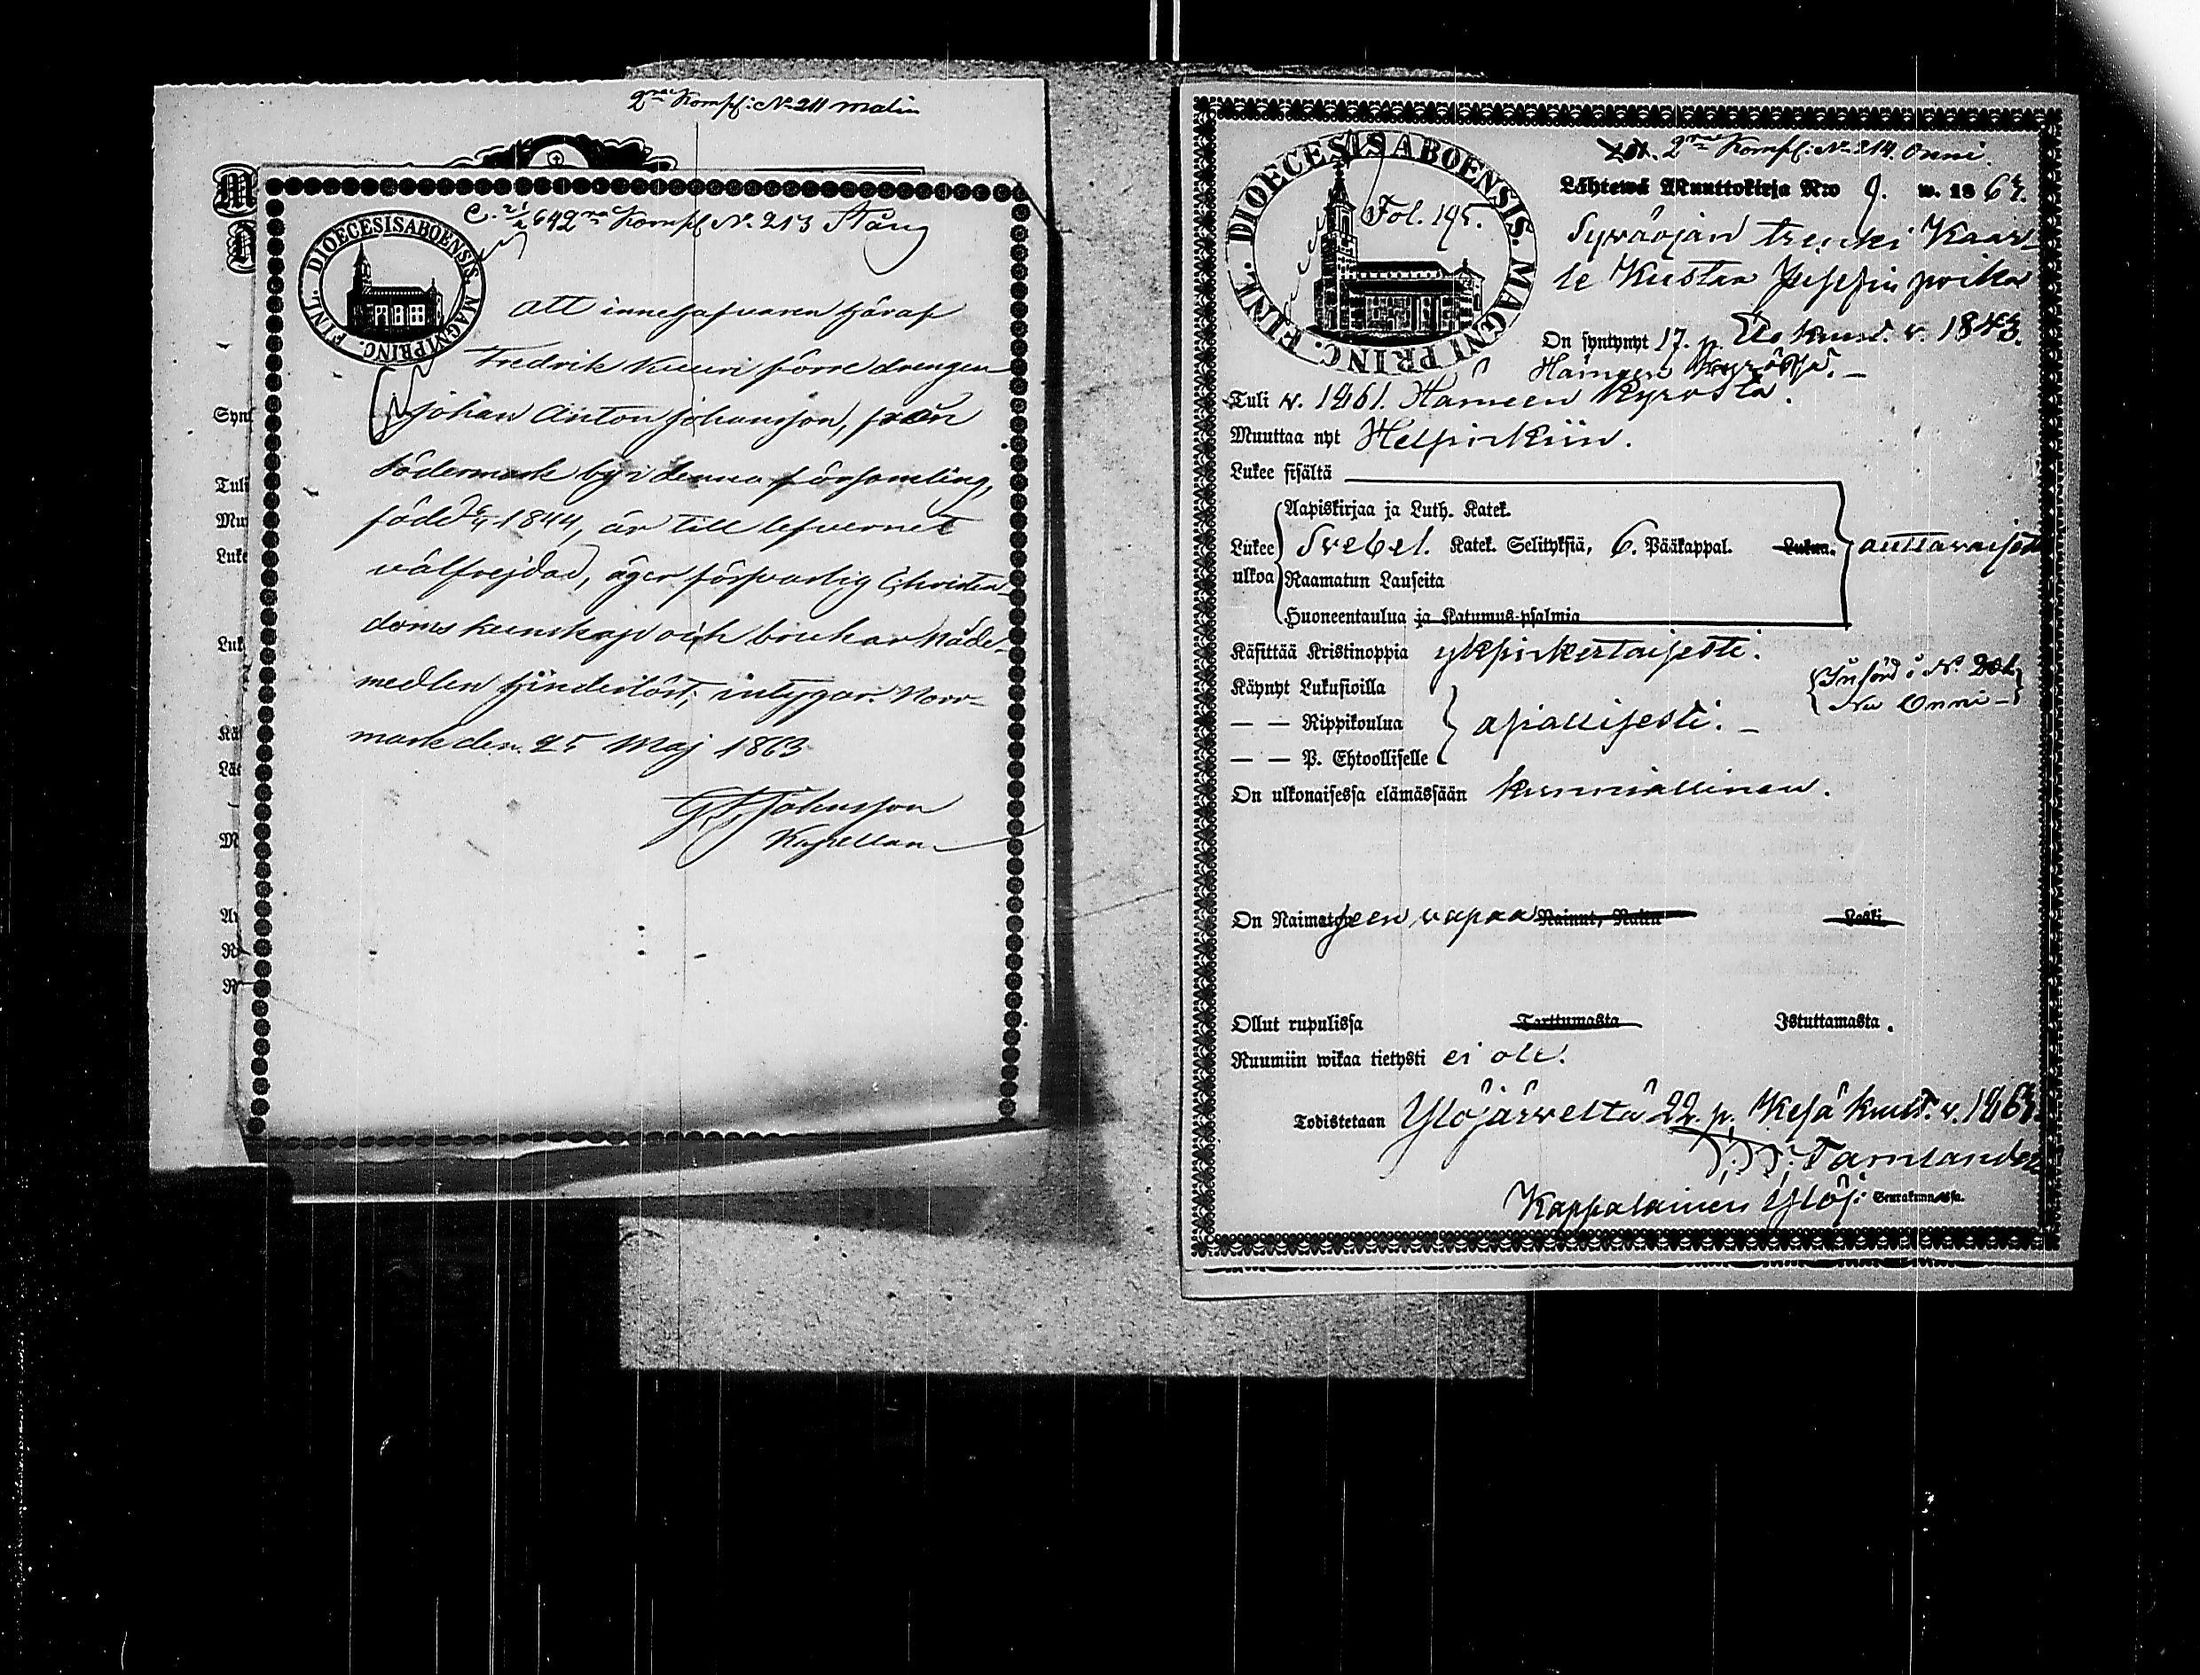 2:ra Komp: No 211 Malin
M
N
Synt
Tuli
Muu
Luke
Luk
Käs
Läs
M
Av
R
R
C. 2/1 64 2:ra Komp No. 213 Stång
FINL. DIOECESIS ABOENSIS. MAGNI PRINC.
Att innehafvaren häraf
Fredrik Kuuri förre drengen
Johan Anton Johansson, från
Södermark by i denna församling,
född 1844, är till lefvernet
välfrejdad, äger försvarlig Christen-
doms kunskap och brukar Nåde-
medlen hinderlöst; intygar. Norr-
mark den 25 Maj 1863
G. F. Johansson
Kapellan
FINL. DIOECESIS ABOENSIS. MAGNI PRINC.
Fol. 195.
201. 2:ra Komp: No 214. Onni.
Lähtewä Muuttokirja N:o 9. w. 1863.
Sywäojan trenki Kaar-
le Kustaa Jussin poika
On syntynyt 17. p. Elo kuus. v. 1843.
Hämeen Kyrössä. —
Tuli v. 1861. Hämeen Kyröstä.
Muuttaa nyt Helsinkiin.
Lukee sisältä
Aapiskirjaa ja Luth. Katek.
Lukee ulkoa Svebel. Katek. Selityksiä, 6. Pääkappal. Lukua. auttavasti
Raamatun Lauseita
Huoneentaulua ja Katumus-psalmia
Käsittää Kristinoppia yksinkertaisesti.
Käynyt Lukusioilla
— — Rippikoulua asiallisesti. —
— — P. Ehtoolliselle
Införd i No. 201
Nu Onni —
On ulkonaisessa elämässään kunniallinen.
On Naimaseen vapaa Nainut, Naitu Leski.
Ollut rupulissa Tarttumasta Istuttamasta.
Ruumiin wikaa tietysti ei ole.
Todistetaan Ylöjärveltä 22. p. Kesä kuus. v. 1863.
Tamlander
Kappalainen Ylöj. Seurakunnassa.